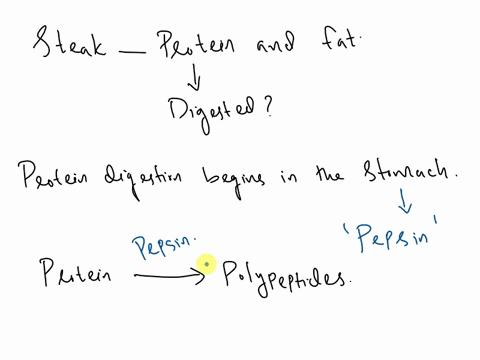 Steak — Protein and fat.
↓
Digested?
Protein digestion begins in the stomach.
↓
'Pepsin'
Pepsin.
Protein → Polypeptides.